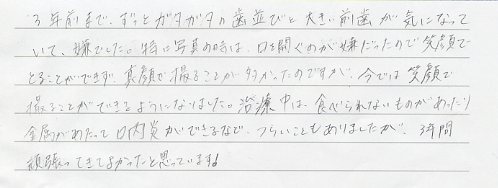 3年前まで、ずっとガタガタの歯並びと大きい前歯が気になって
いて、嫌でした。特に写真の時は、口を開くのが嫌だったので笑顔で
とることができず、真顔で撮ることが多かったのですが、今では笑顔で
撮ることができるようになりました。治療中は、食べられないものがあったり
金属があたって口内炎ができるなど、つらいこともありましたが、3年間
頑張ってきてよかったと思っています!